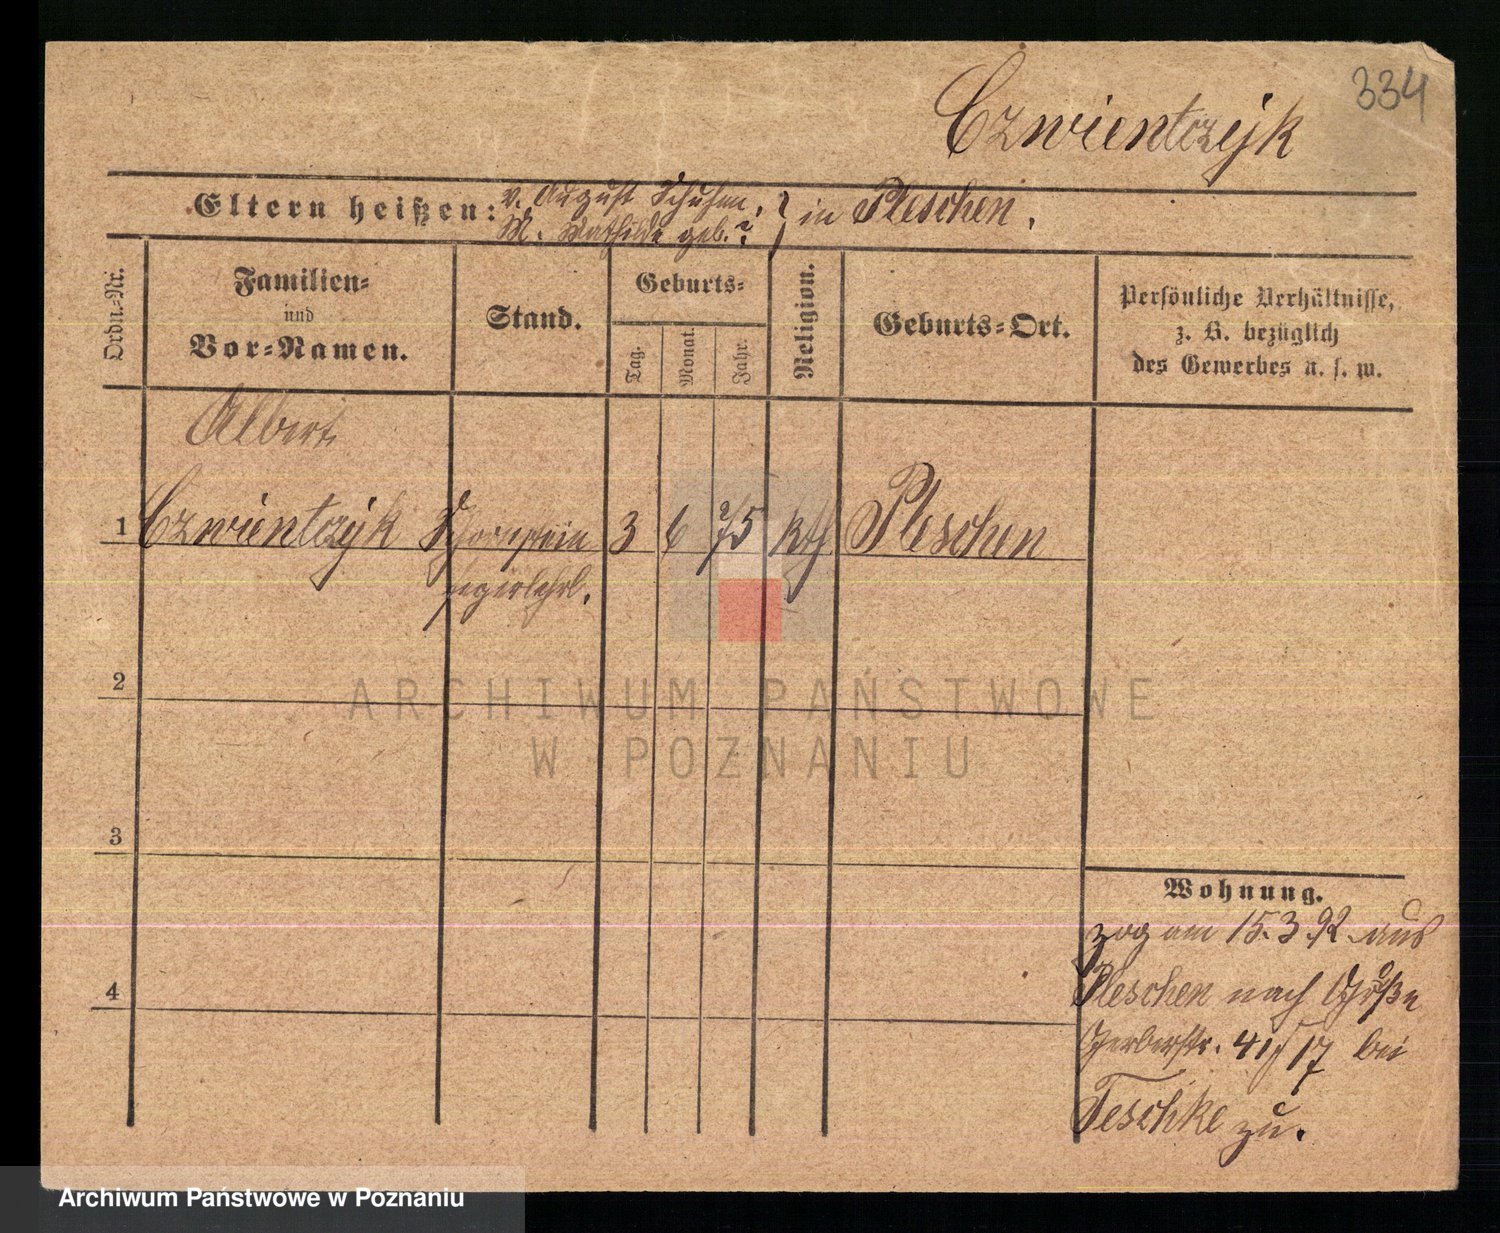 334
Czwientczyk
Eltern heißen: V. August Schuhm.,
M. Mathilde geb. ? } in Pleschen.
Ordn.-Nr.
Familien-
und
Vor-Namen.
Stand.
Geburts-
Tag.
Monat.
Jahr.
Religion.
Geburts-Ort.
Persönliche Verhältnisse,
z. B. bezüglich
des Gewerbes u. s. w.
Albert
1 Czwientczyk Schornstein 3 6 75 kth Pleschen
fegerlehrl.
2
3
4
Wohnung.
zog am 15.3.92 aus
Pleschen nach Große
Gerberstr. 41/17 bei
Teschke zu.
ARCHIWUM PAŃSTWOWE
W POZNANIU
Archiwum Państwowe w Poznaniu